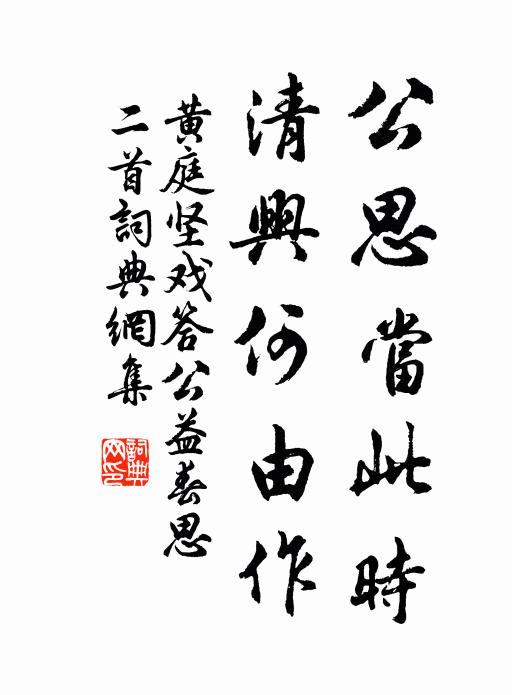 公思當此時
清興何由作
黄庭坚戏答公益春思
二首詞典網集
詞典
网印